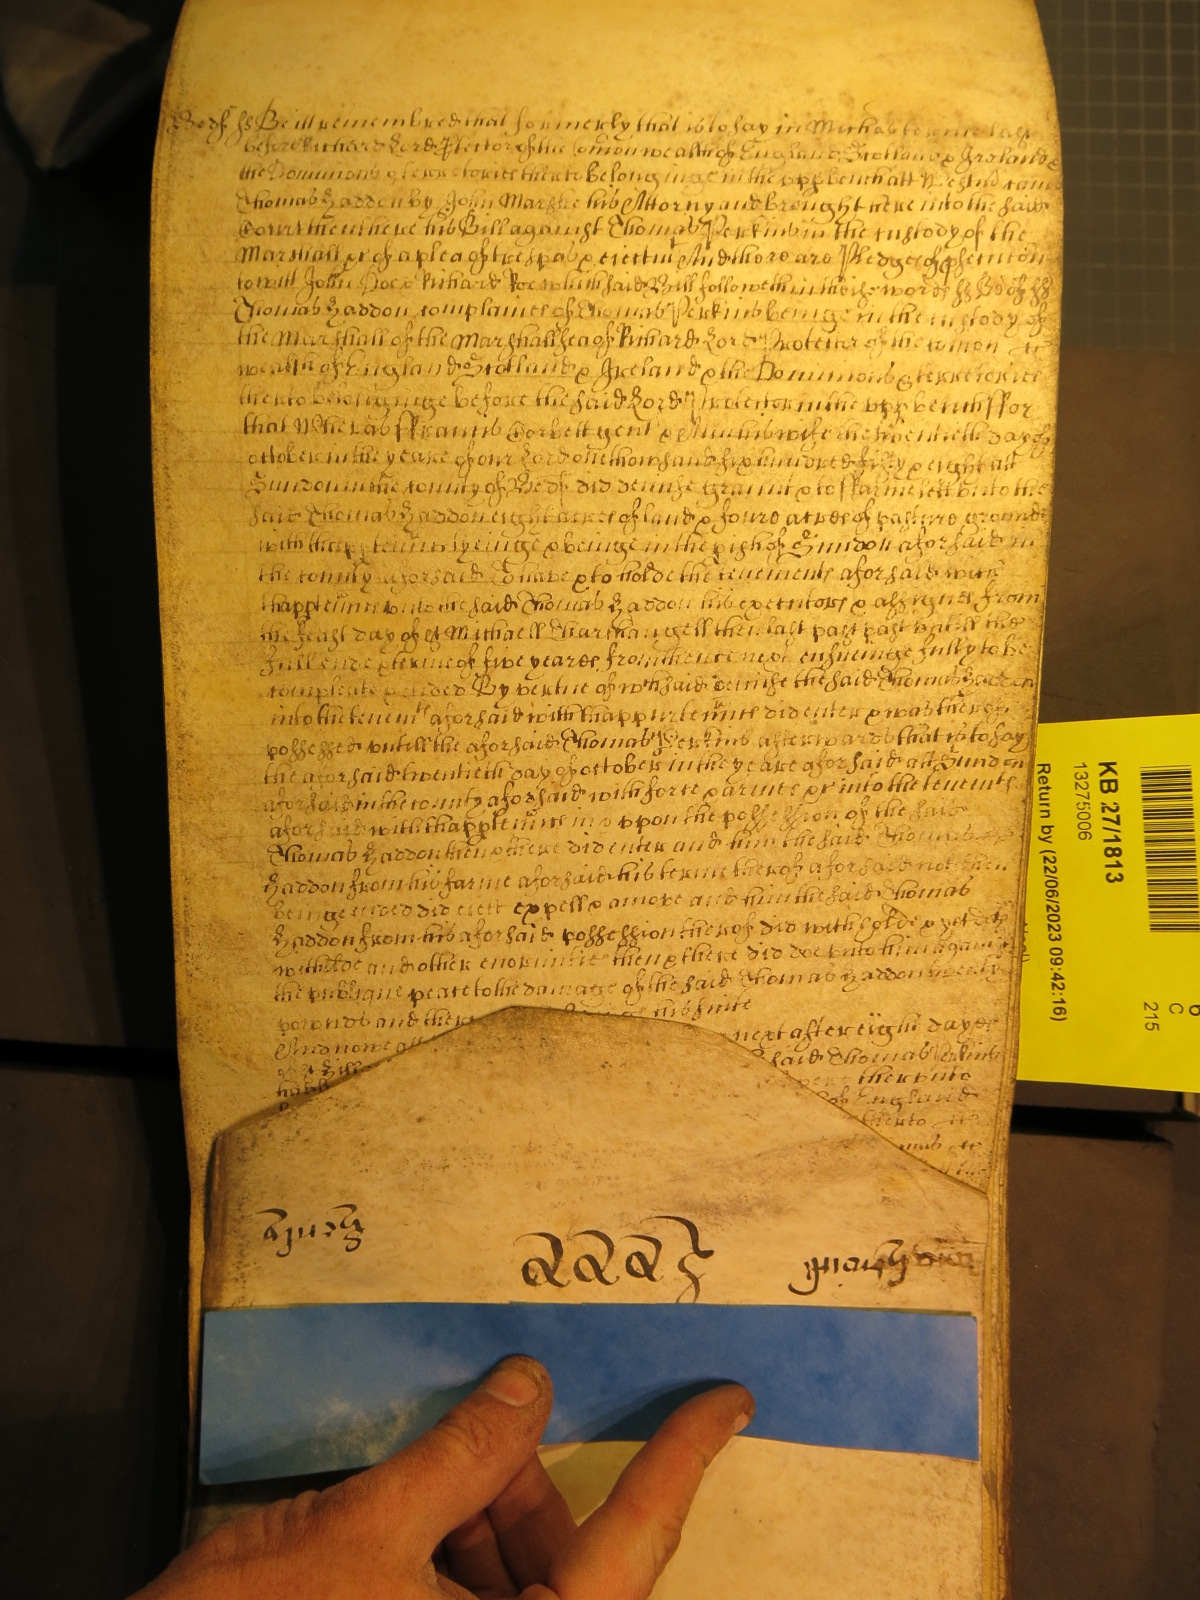 Bedf ss Be itt remembred that formerly that is to say in Michas terme last
before Richard Lord Ptector of the Comonwealth of England Scotland & Ireland &
the Dominions & terretories thereto belonginge in the upp bench att Westm came
Thomas Haddon by John Marshe his Attorny and brought here into the said
Court then there his Bill against Thomas Perkins in the custody of the
Marshall &c of a plea of trespas & eiectmt And there are Pledges of psecution
to witt John Doe & Richard Roe which said Bill followeth in theise words ss Bedf ss
Thomas Haddon complaines of Thomas Perkins beinge in the custody of
the Marshall of the Marshallsea of Richard Lord Protector of the comon
wealth of England Scotland & Ireland & the Dominions & terretories
thereto belonginge before the said Lord Protector in the upp bench ffor
that Whereas ffrancis Corbett gent & Ann his wife the twentieth day of
october in the yeare of our Lord one thousand six hundred fifty & eight att
Sundon in the county of Bedf did demise graunt & to ffarme lett unto the
said Thomas Haddon eight acres of land & foure acres of pasture ground
with thapptennts lyeinge & beinge in the pish of Sundon aforsaid in
the county aforsaid To have & to holde the tenements aforsaid with
thapptennts unto the said Thomas Haddon his executors & assignes from
the feast day of St Michaell Tharchangell then last past past untill the
full end & terme of five yeares from thence next ensueinge fully to be
compleate & ended By vertue of wch said demise the said Thomas Haddon
into the tenemts aforsaid with thappurtennts did enter & was therof
possessed untill the aforsaid Thomas Perkins afterwards that is to say
the aforsaid twentieth day of october in the yeare aforsaid att Sundon
aforsaid in the county aforsaid with force & armes &c into the tenements
aforsaid with thapptennts in & uppon the possession of the said
Thomas Haddon then & there did enter and him the said Thomas
Haddon from his farme aforsaid his terme therof aforsaid not then
beinge ended did eiect expell & amove and him the said Thomas
Haddon from his aforsaid possession therof did withholde & yet doth
withholde and other enormities then & there did doe unto him against
the publique peace to the damage of the said Thomas Haddon twenty
pounds and there his suite
And nowe att next after eight dayes
said Thomas Perkins
Bill therunto
of England
thereto
KB 27/1813
13275006
Return by (22/06/2023 09:42:16)
C
215